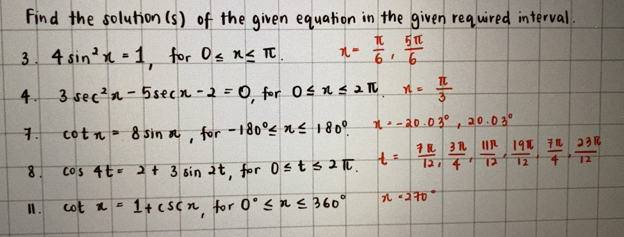 Find the solution(s) of the given equation in the given required interval.
3. 4 sin²x = 1, for 0 ≤ x ≤ π. x = π/6, 5π/6
4. 3 sec²x - 5 sec x - 2 = 0, for 0 ≤ x ≤ 2π. x = π/3
7. cot x = 8 sin x, for -180° ≤ x ≤ 180°. x = -20.03°, 20.03°
8. cos 4t = 2 + 3 sin 2t, for 0 ≤ t ≤ 2π. t = 7π/12, 3π/4, 11π/12, 19π/12, 7π/4, 23π/12
11. cot x = 1 + csc x, for 0° ≤ x ≤ 360° x = 270°